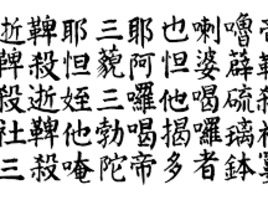 嚕薜硫璃鉢
喇婆喝囉者
也怛他揭多
耶阿囉喝帝
三藐三勃陀
耶怛姪他唵
鞞殺逝鞞殺
逝鞞殺社三